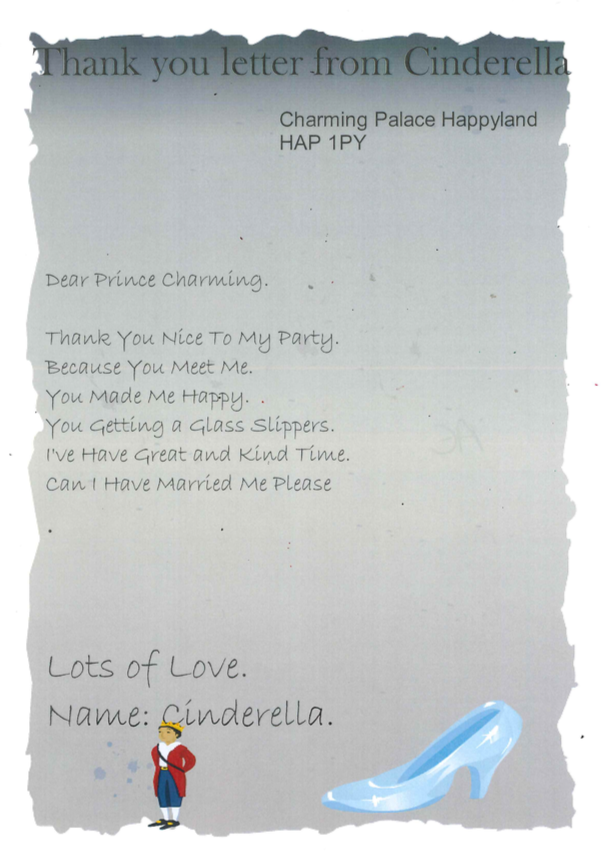 Thank you letter from Cinderella
Charming Palace Happyland
HAP 1PY
Dear Prince Charming.
Thank You Nice To My Party.
Because You Meet Me.
You Made Me Happy.
You Getting a Glass Slippers.
I've Have Great and Kind Time.
Can I Have Married Me Please
Lots of Love.
Name: Cinderella.